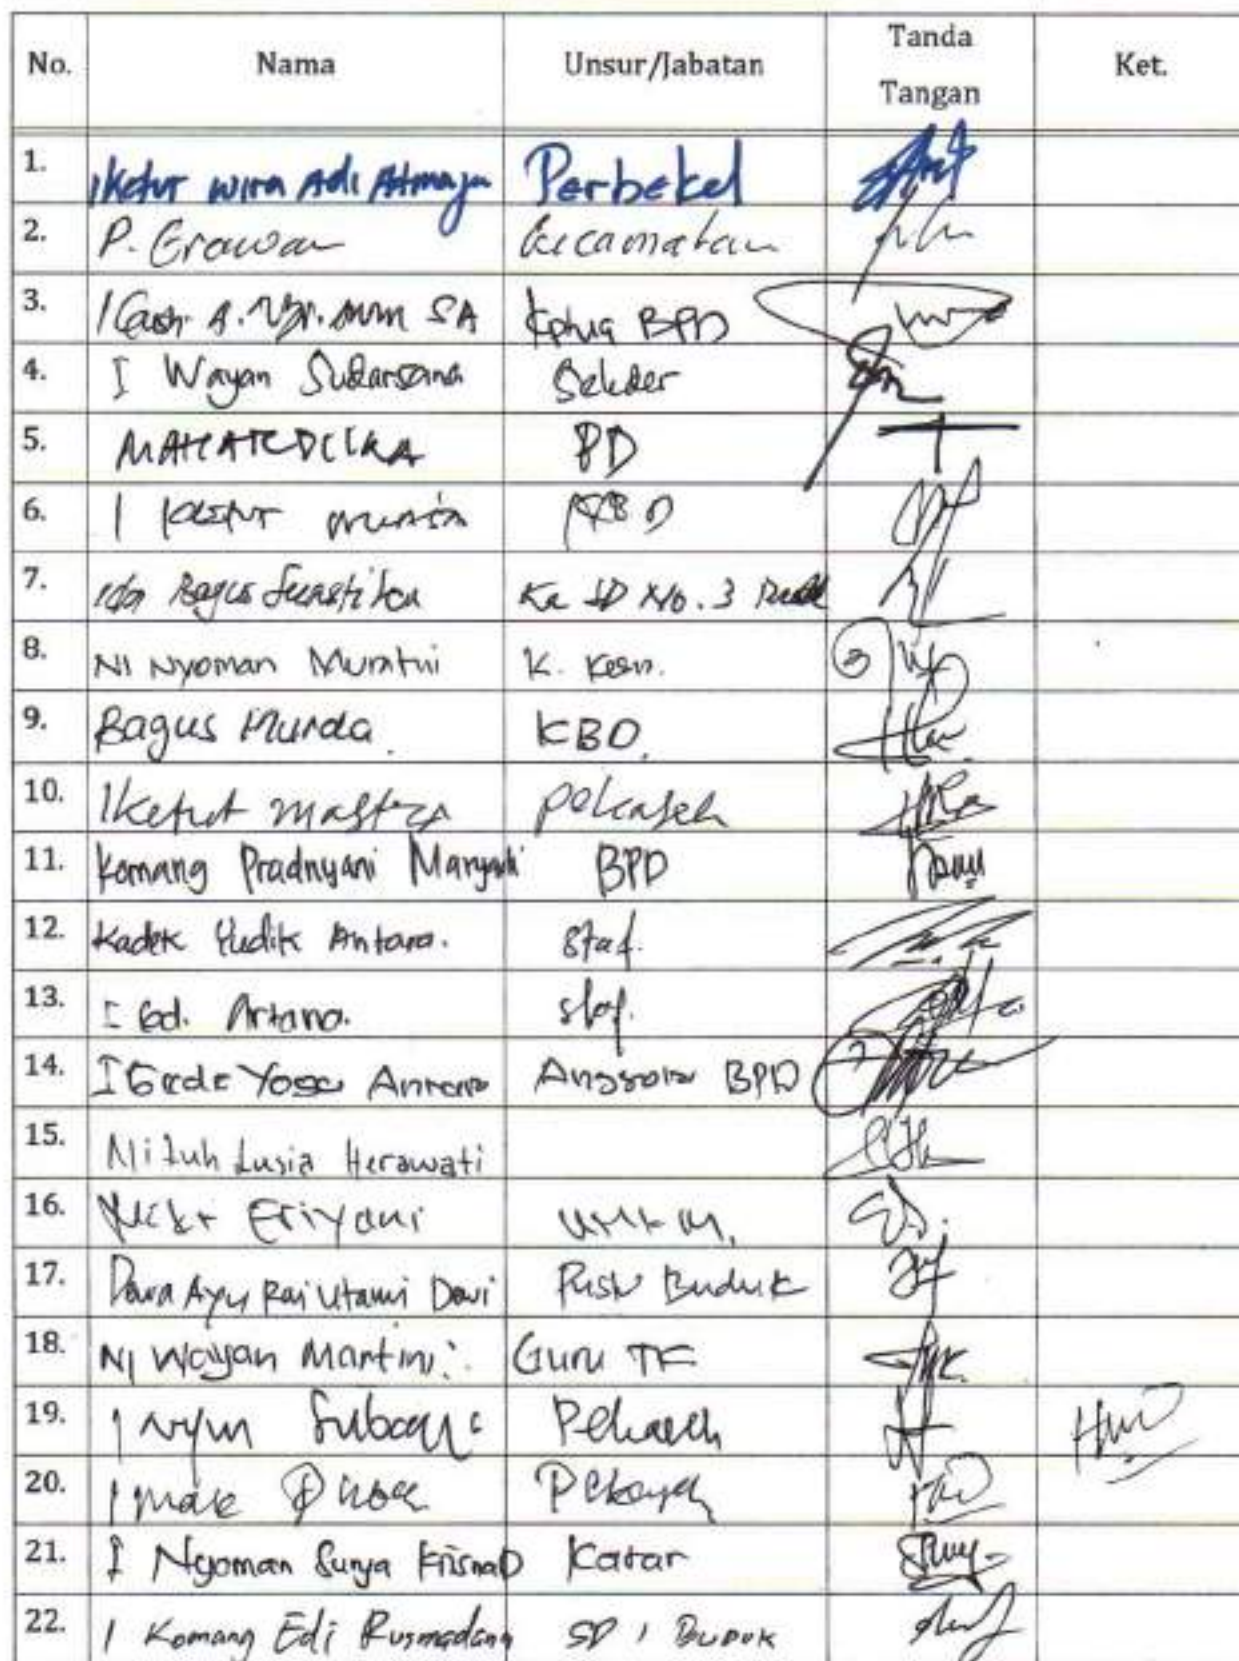 No. Nama Unsur/Jabatan Tanda Tangan Ket.
1. I Ketut Wira Adi Atmaja Perbekel
2. P. Erawan Kecamatan
3. SA Ketua BPD
4. I Wayan Sudarsana Sekdes
5. PD
6. I Ketut
7. Ida Bagus Suastika Ka SD No. 3
8. Ni Nyoman Muratni K. Kesr.
9. Bagus Murda. KBD.
10. I Ketut Mastra pekaseh
11. Komang Pradnyani Maryanti BPD
12. Kadek Yudik Antara. Staf.
13. I Gd. Artana. Staf.
14. I Gede Yoga Antara Anggota BPD
15. Ni Luh Lusia Herawati
16. Eriyani UMKM.
17. Dewa Ayu Rai Utami Dewi Pustu Buduk
18. Ni Wayan Martini. Guru TK
19. I Nym Pekaseh
20. I Made Pekaseh
21. I Nyoman Surya Krisna D Katar
22. I Komang Edi Rusmadana SD 1 Buduk